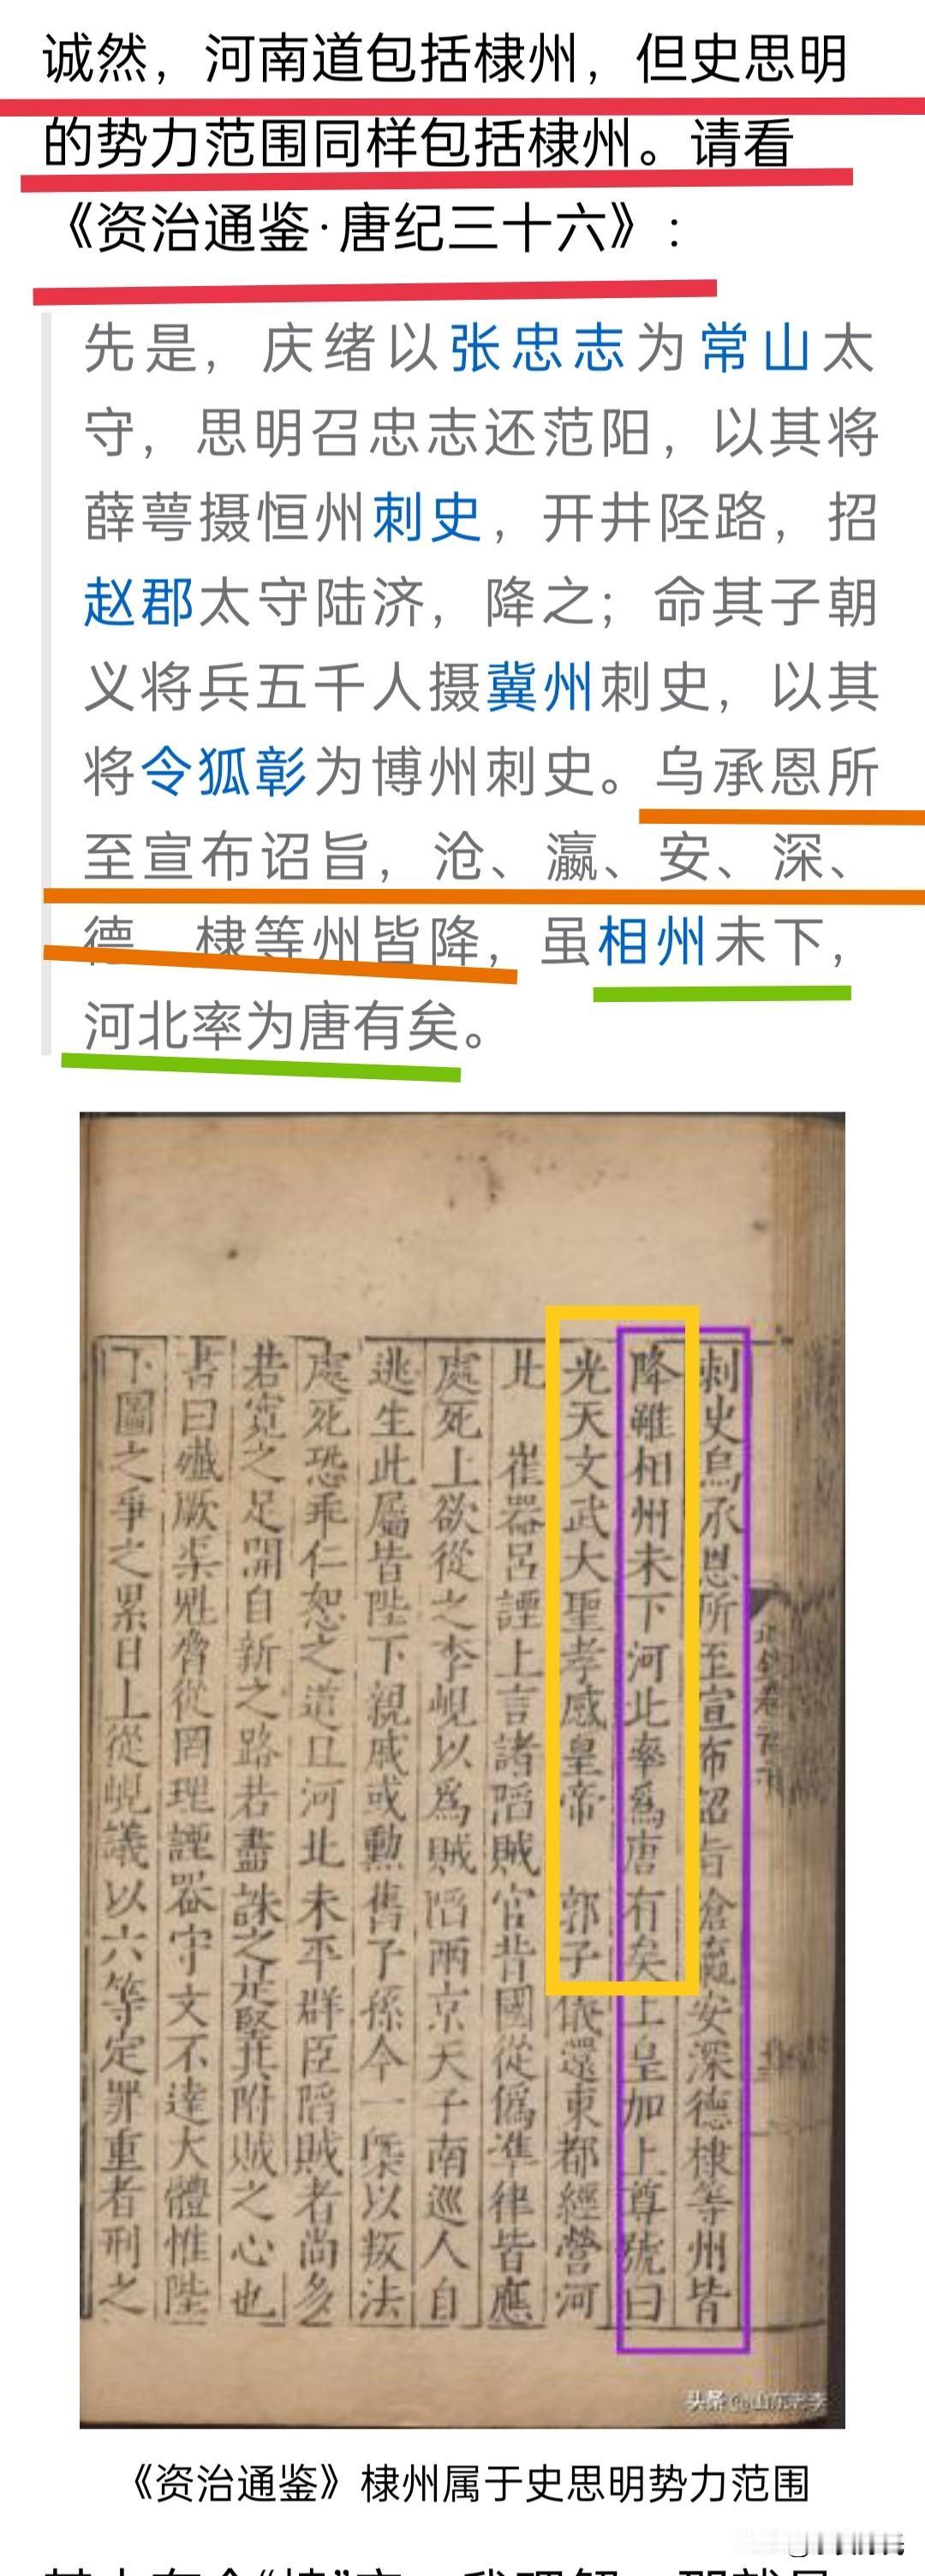 诚然，河南道包括棣州，但史思明
的势力范围同样包括棣州。请看
《资治通鉴·唐纪三十六》：
先是，庆绪以张忠志为常山太
守，思明召忠志还范阳，以其将
薛萼摄恒州刺史，开井陉路，招
赵郡太守陆济，降之；命其子朝
义将兵五千人摄冀州刺史，以其
将令狐彰为博州刺史。乌承恩所
至宣布诏旨，沧、瀛、安、深、
德、棣等州皆降，虽相州未下，
河北率为唐有矣。
刺史烏承恩所至宣布詔旨滄瀛安深德棣等州皆
降雖相州未下河北率爲唐有矣上皇加上尊號曰
光天文武大聖孝感皇帝 郭子儀還東都經營河
北 崔器呂諲上言諸陷賊官背國從僞準律皆應
處死上欲從之李峴以爲賊陷兩京天子南巡人自
逃生此屬皆陛下親戚或勳舊子孫今一槩以叛法
處死恐乖仁恕之道且河北未平群臣陷賊者尚多
若寬之足開自新之路若盡誅之是堅其附賊之心也
書曰殲厥渠魁脅從罔理諲器守文不達大體惟陛
下圖之爭之累日上從峴議以六等定罪重者刑之
头条@山东老李
《资治通鉴》棣州属于史思明势力范围